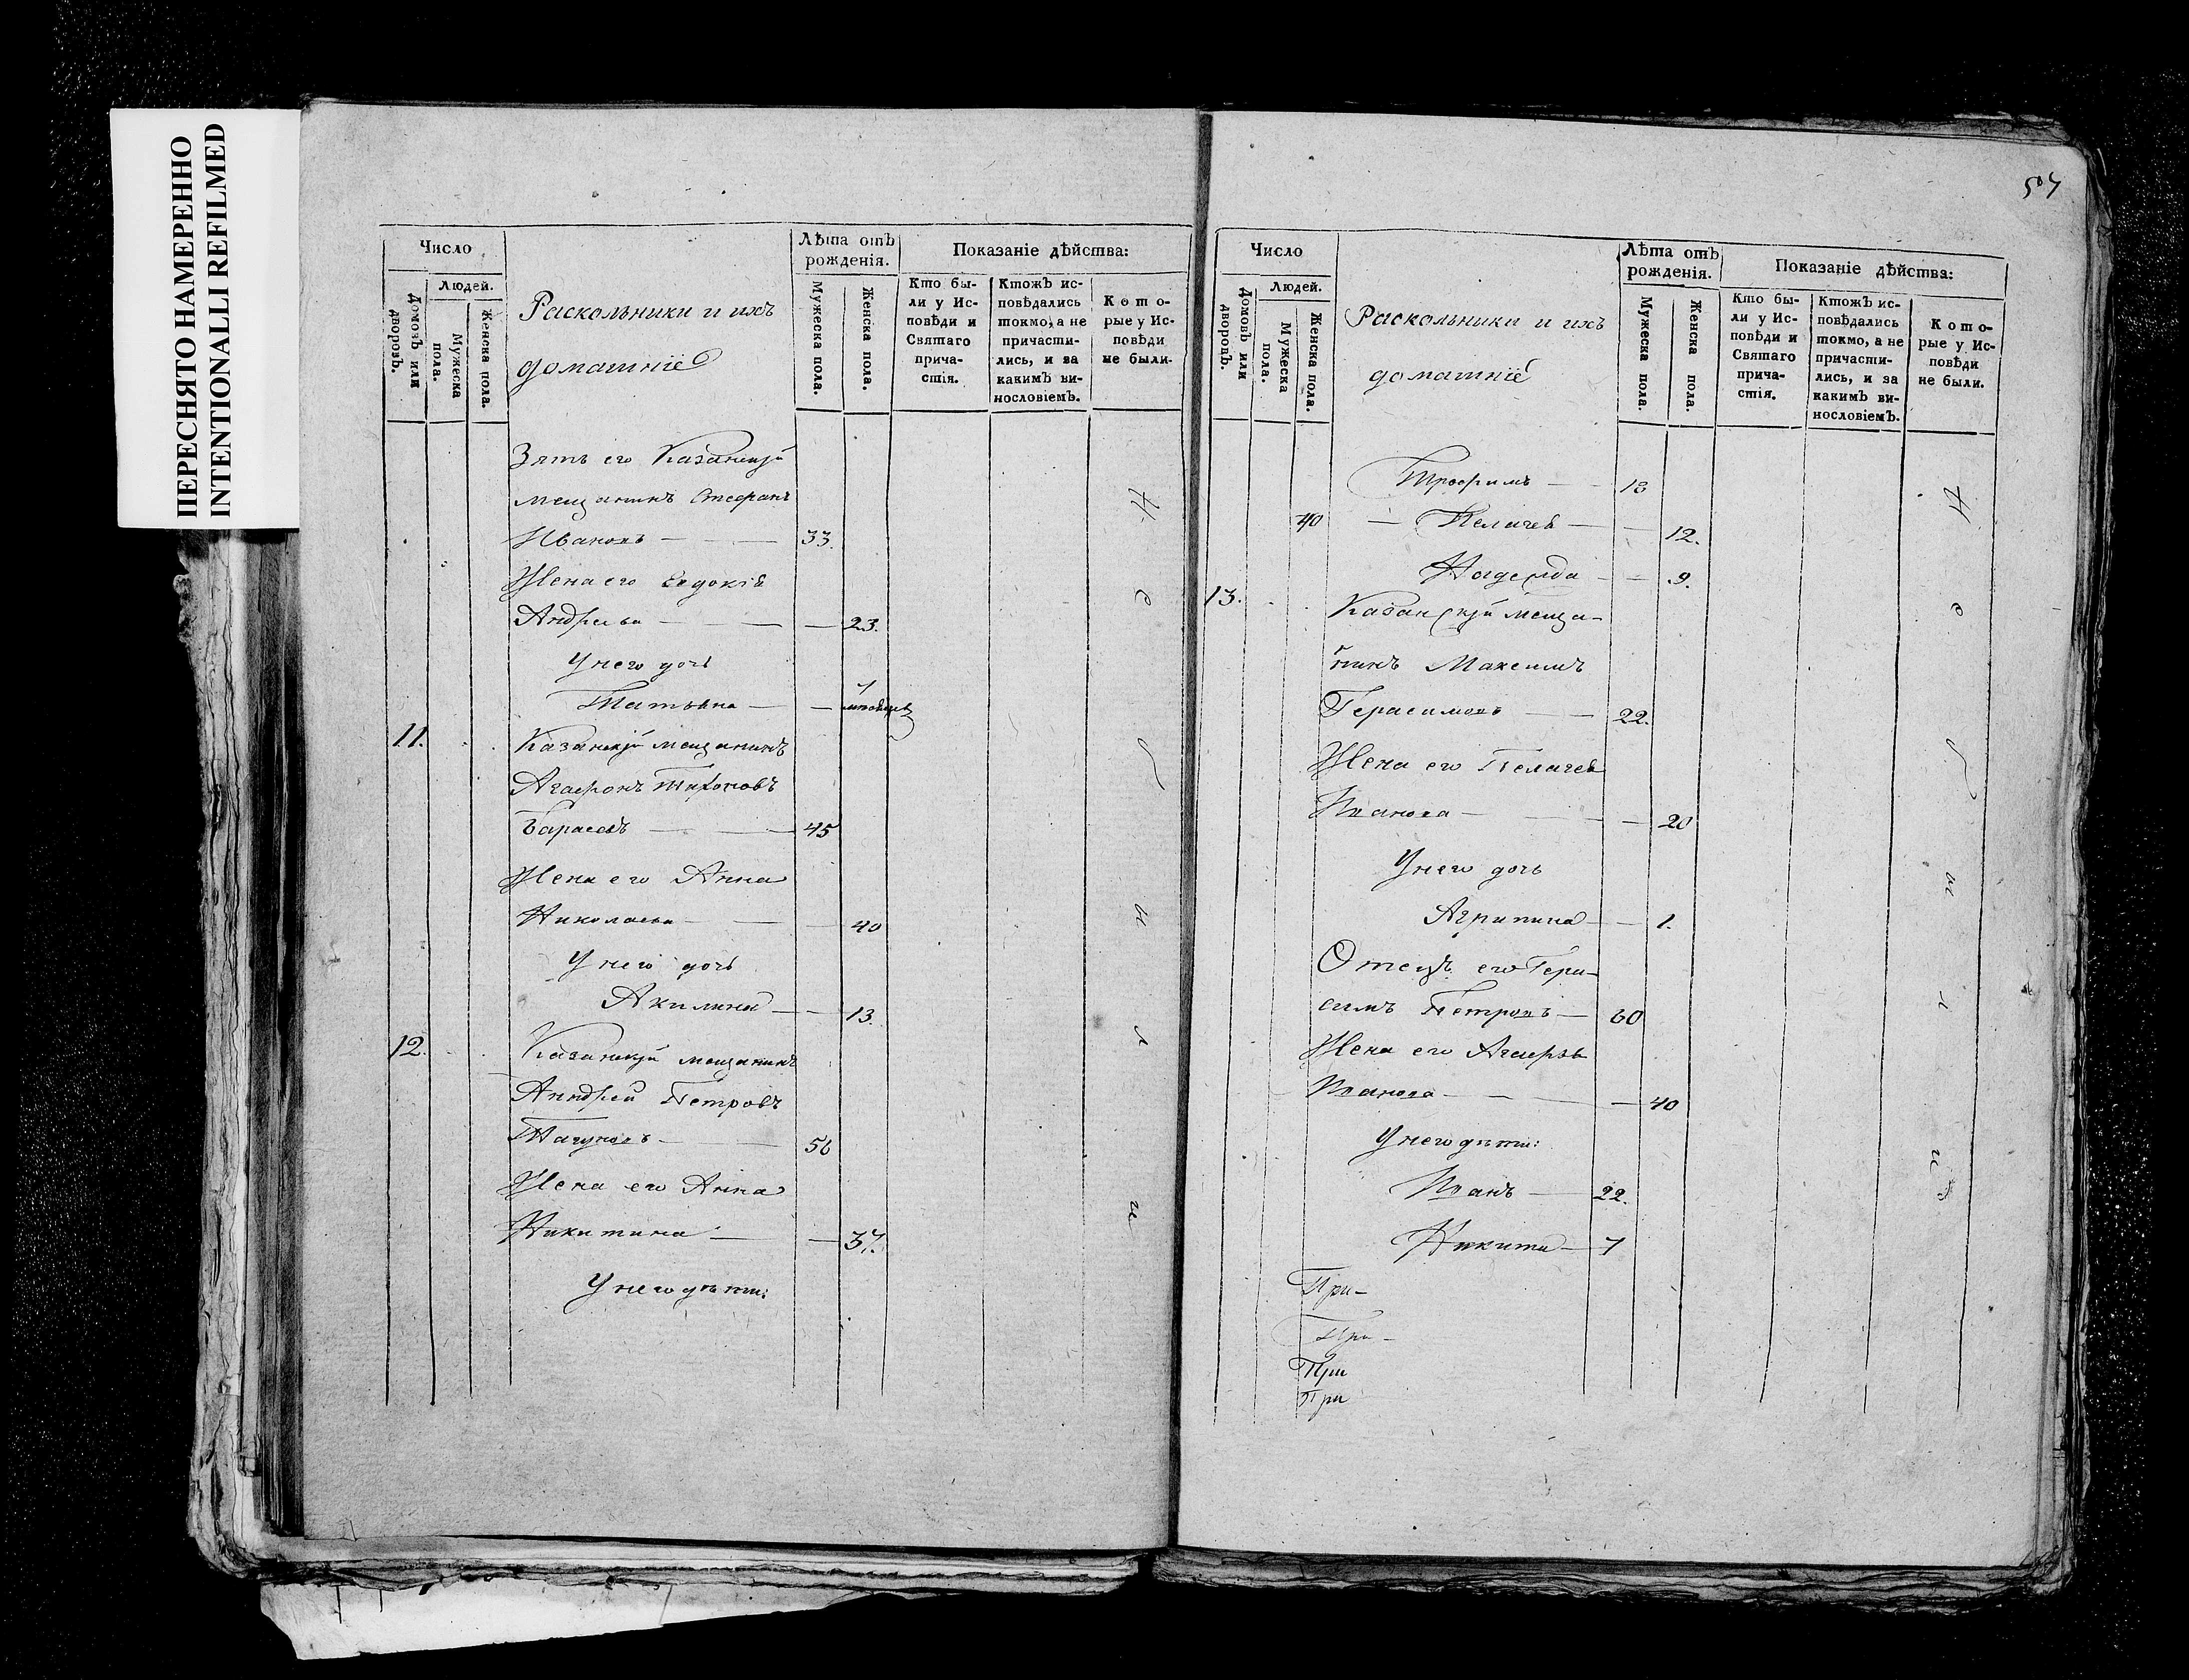 ПЕРЕСНЯТО НАМЕРЕННО
INTENTIONALLI REFILMED
Число
Людей.
Домовъ или дворовъ.
Мужеска пола.
Женска пола.
Раскольники и ихъ
домашніе
Лѣта отъ рожденія.
Мужеска пола.
Женска пола.
Показаніе дѣйства:
Кто бы-
ли у Ис-
повѣди и
Святаго
прича-
стія.
Ктожъ ис-
повѣдались
токмо, а не
причасти-
лись, и за
какимъ ви-
нословіемъ.
Кото-
рые у Ис-
повѣди
не были.
Зять его Казанскій
мещанинъ Стефанъ
Ивановъ — 33.
Жена его Евдокія
Андреева — 23.
У него дочь
Татьяна — 1
11. Казанскій мещанинъ
Агафонъ Тихоновъ
45
Жена его Анна
Николаева — 40
У него дочь
Акилина — 13.
12. Казанскій мещанинъ
Андрей Петровъ
56
Жена его Анна
Никитина — 37.
У него дѣти:
Н
е
б
ы
л
и
507
Число
Людей.
Домовъ или дворовъ.
Мужеска пола.
Женска пола.
Раскольники и ихъ
домашніе
Лѣта отъ рожденія.
Мужеска пола.
Женска пола.
Показаніе дѣйства:
Кто бы-
ли у Ис-
повѣди и
Святаго
прича-
стія.
Ктожъ ис-
повѣдались
токмо, а не
причасти-
лись, и за
какимъ ви-
нословіемъ.
Кото-
рые у Ис-
повѣди
не были.
Трофимъ — 13
40 — Пелагея — 12.
Надежда — 9.
13. Казанскій меща-
нинъ Максимъ
Герасимовъ — 22.
Жена его Пелагея
Иванова — 20
У него дочь
Агрипина — 1.
Отецъ его Гера-
симъ Петровъ — 60
Жена его Агафья
Иванова — 40
У него дѣти:
Иванъ — 22.
Никита — 7
При-
При-
При
При
Н
е
б
ы
л
и